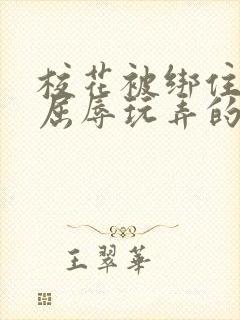 校花被绑住
屈辱玩弄的
王翠華